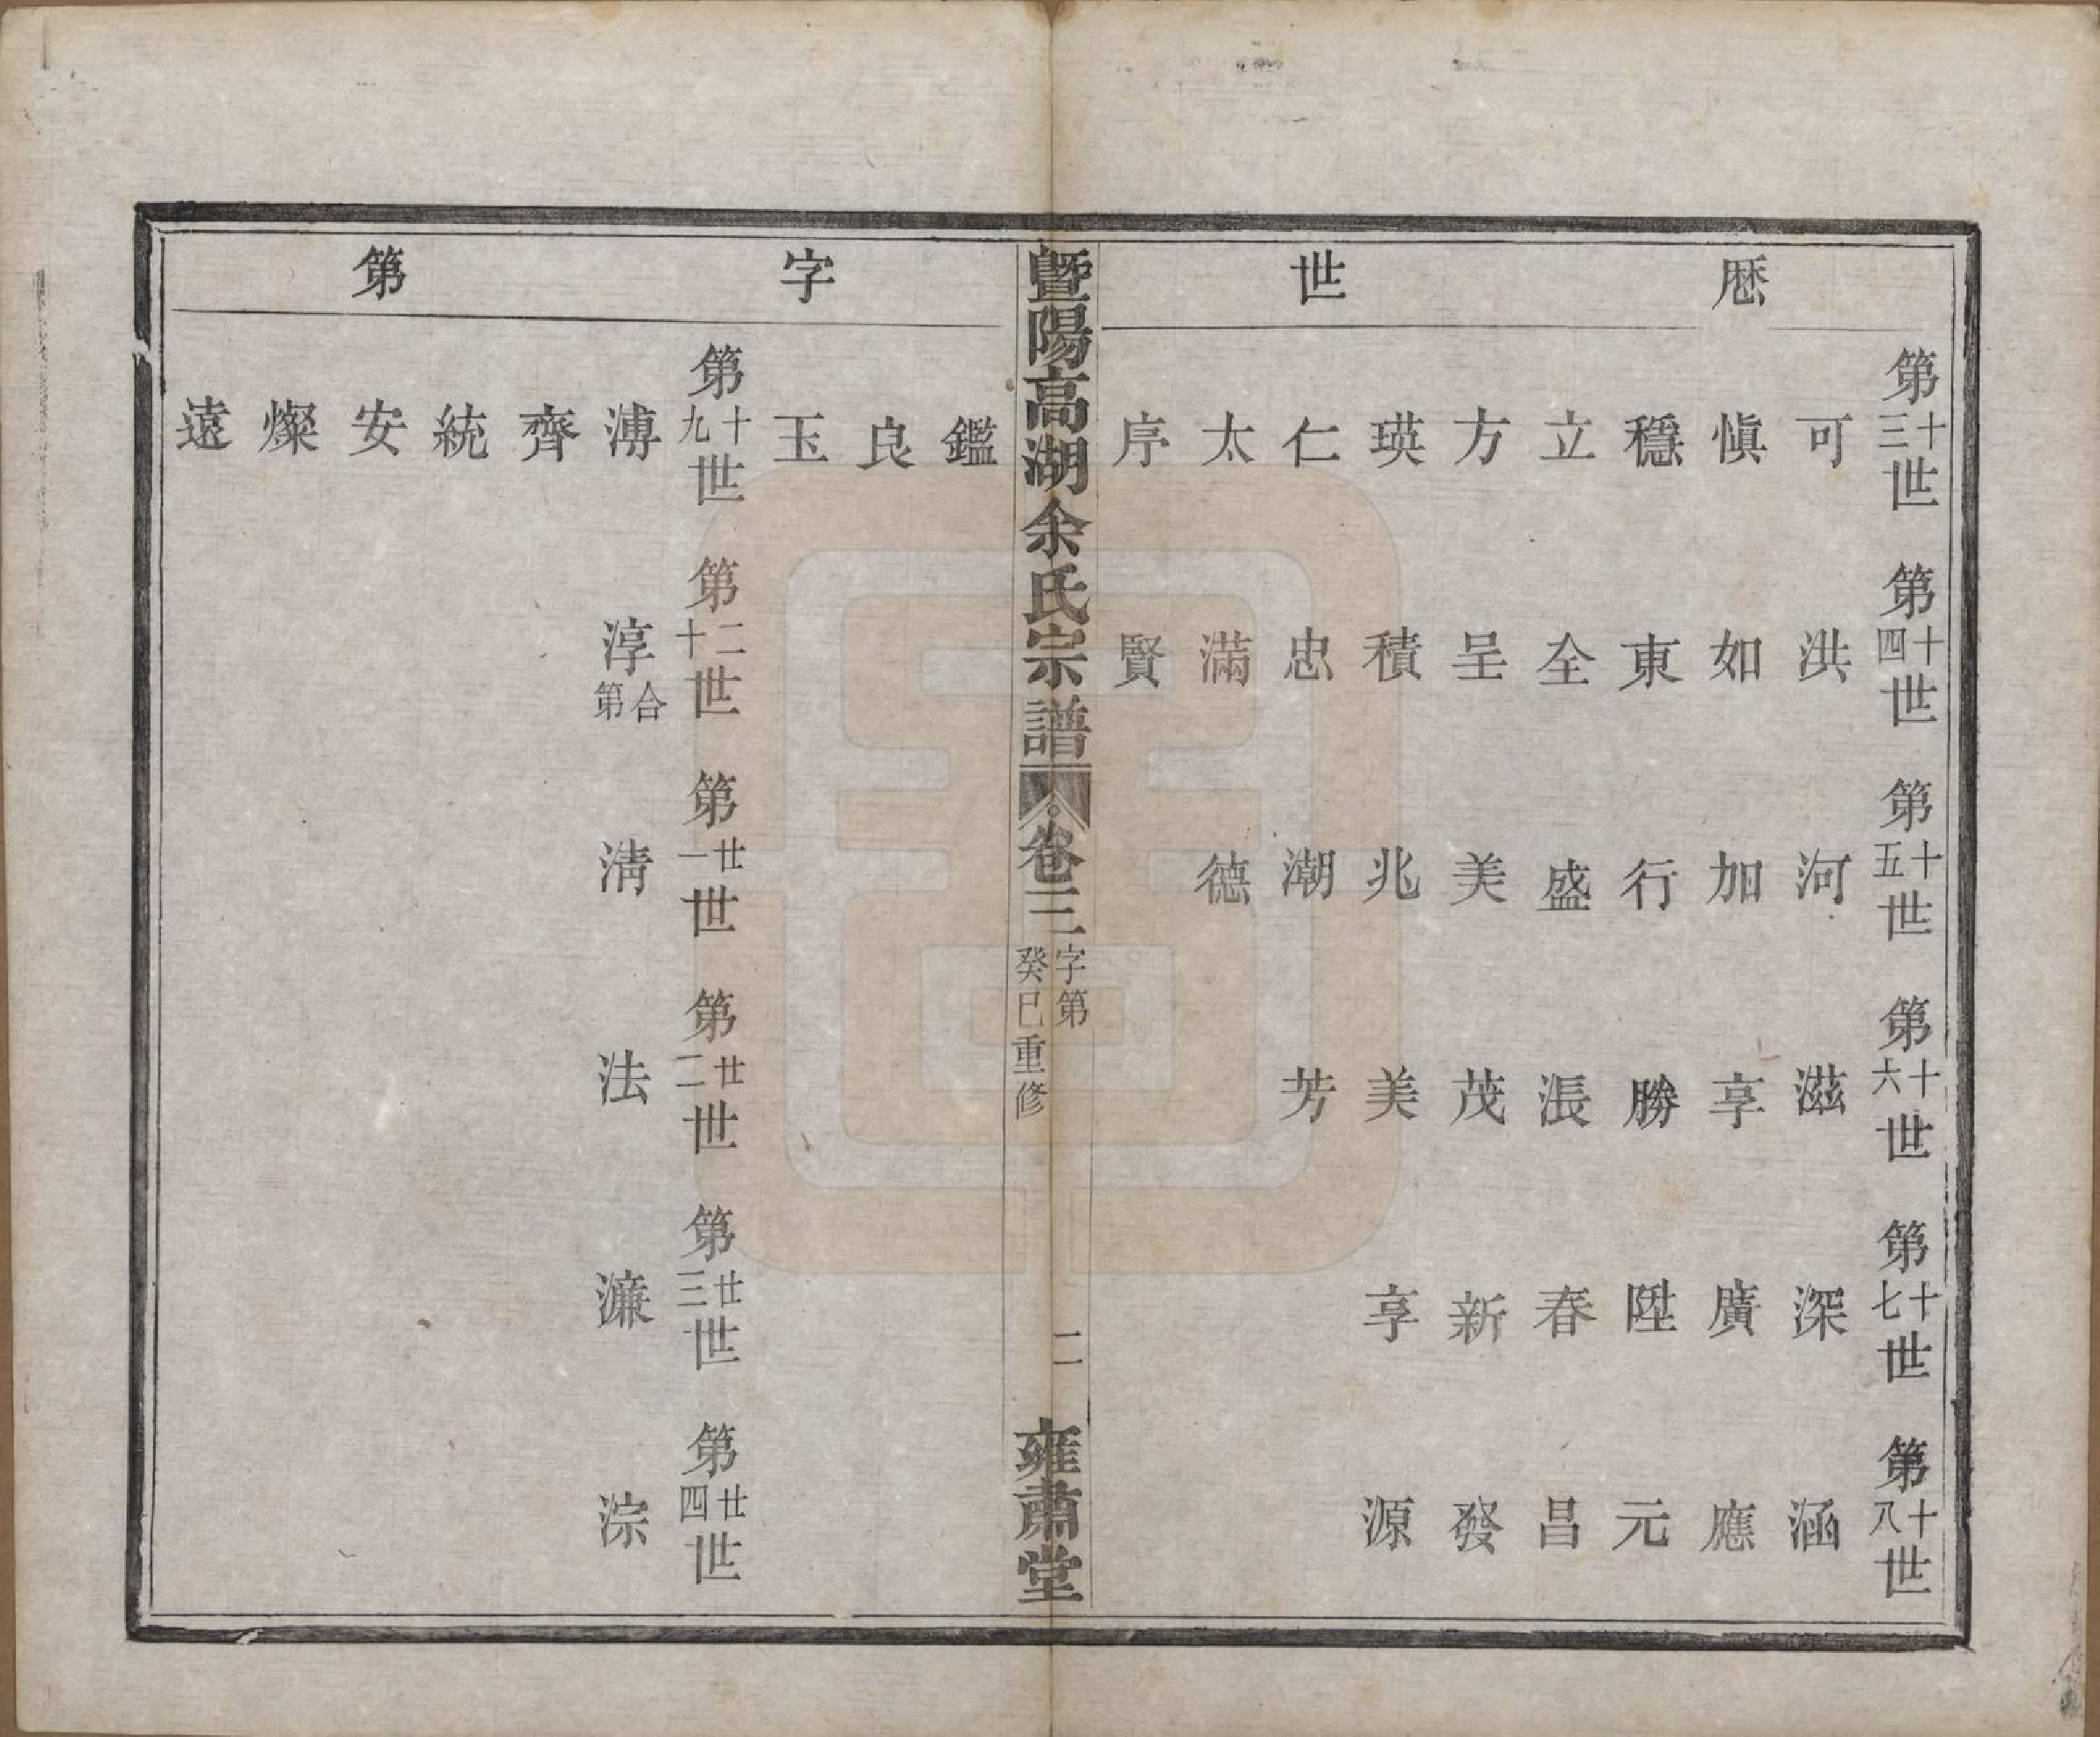 歷世字第
第十三世 第十四世 第十五世 第十六世 第十七世 第十八世
可 洪 河 滋 深 涵
愼 如 加 享 廣 應
穩 東 行 勝 陞 元
立 全 盛 漲 春 昌
方 呈 美 茂 新 發
瑛 積 兆 美 享 源
仁 忠 潮 芳
太 滿 德
序 賢
暨陽高湖余氏宗譜 卷三 字第 癸巳重修 二 雍肅堂
鑑
良
玉
第十九世 第二十世 第廿一世 第廿二世 第廿三世 第廿四世
溥 淳合第 淸 法 濂 淙
齊
統
安
燦
遠